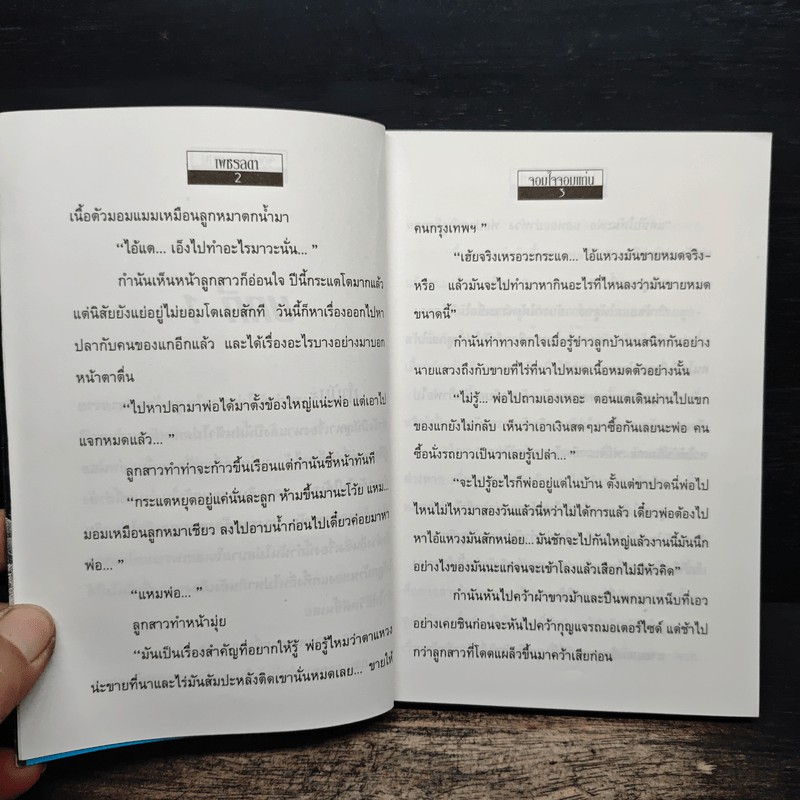 เพชรลดา
2
เนื้อตัวมอมแมมเหมือนลูกหมาตกน้ำมา
“ไอ้แต... เอ็งไปทำอะไรมาวะนั่น... ”
กำนันเห็นหน้าลูกสาวก็อ่อนใจ ปีนี้กระแตโตมากแล้ว
แต่นิสัยยังแย่อยู่ไม่ยอมโตเลยสักที วันนี้ก็หาเรื่องออกไปหา
ปลากับคนของแกอีกแล้ว และได้เรื่องอะไรบางอย่างมาบอก
หน้าตาตื่น
“ไปหาปลามาพ่อได้มาตั้งข้องใหญ่แน่ะพ่อ แต่เอาไป
แจกหมดแล้ว... ”
ลูกสาวทำท่าจะก้าวขึ้นเรือนแต่กำนันชี้หน้าทันที
“กระแตหยุดอยู่แค่นั่นละลูก ห้ามขึ้นมานะโว้ย แหม...
มอมเหมือนลูกหมาเชียว ลงไปอาบน้ำก่อนไปเดี๋ยวค่อยมาหา
พ่อ... ”
“แหมพ่อ... ”
ลูกสาวทำหน้ามุ่ย
“มันเป็นเรื่องสำคัญที่อยากให้รู้ พ่อรู้ไหมว่าตาแหวง
น่ะขายที่นาและไร่มันสัมปะหลังติดเขานั่นหมดเลย... ขายให้
จอมใจจอมแก่น
3
คนกรุงเทพฯ ”
“เฮ้ยจริงเหรอวะกระแต... ไอ้แหวงมันขายหมดจริง-
หรือ แล้วมันจะไปทำมาหากินอะไรที่ไหนลงว่ามันขายหมด
ขนาดนี้”
กำนันทำทางตกใจเมื่อรู้ข่าวลูกบ้านนสนิทกันอย่าง
นายแสวงถึงกับขายที่ไร่ที่นาไปหมดเนื้อหมดตัวอย่างนั้น
“ไม่รู้... พ่อไปถามเองเหอะ ตอนแตเดินผ่านไปแขก
ของแกยังไม่กลับ เห็นว่าเอาเงินสดๆมาซื้อกันเลยนะพ่อ คน
ซื้อนั่งรถยาวเป็นวาเลยรู้เปล่า... ”
“จะไปรู้อะไรก็พ่ออยู่แต่ในบ้าน ตั้งแต่ขาปวดนี่พ่อไป
ไหนไม่ไหวมาสองวันแล้วนี่หว่าไม่ได้การแล้ว เดี๋ยวพ่อต้องไป
หาไอ้แหวงมันสักหน่อย... มันชักจะไปกันใหญ่แล้วงานนี้มันนึก
อย่างไงของมันนะแก่จนจะเข้าโลงแล้วเสือกไม่มีหัวคิด”
กำนันหันไปคว้าผ้าขาวม้าและปืนพกมาเหน็บที่เอว
อย่างเคยชินก่อนจะหันไปคว้ากุญแจรถมอเตอร์ไซด์ แต่ช้าไป
กว่าลูกสาวที่โดดแผล็วขึ้นมาคว้าเสียก่อน